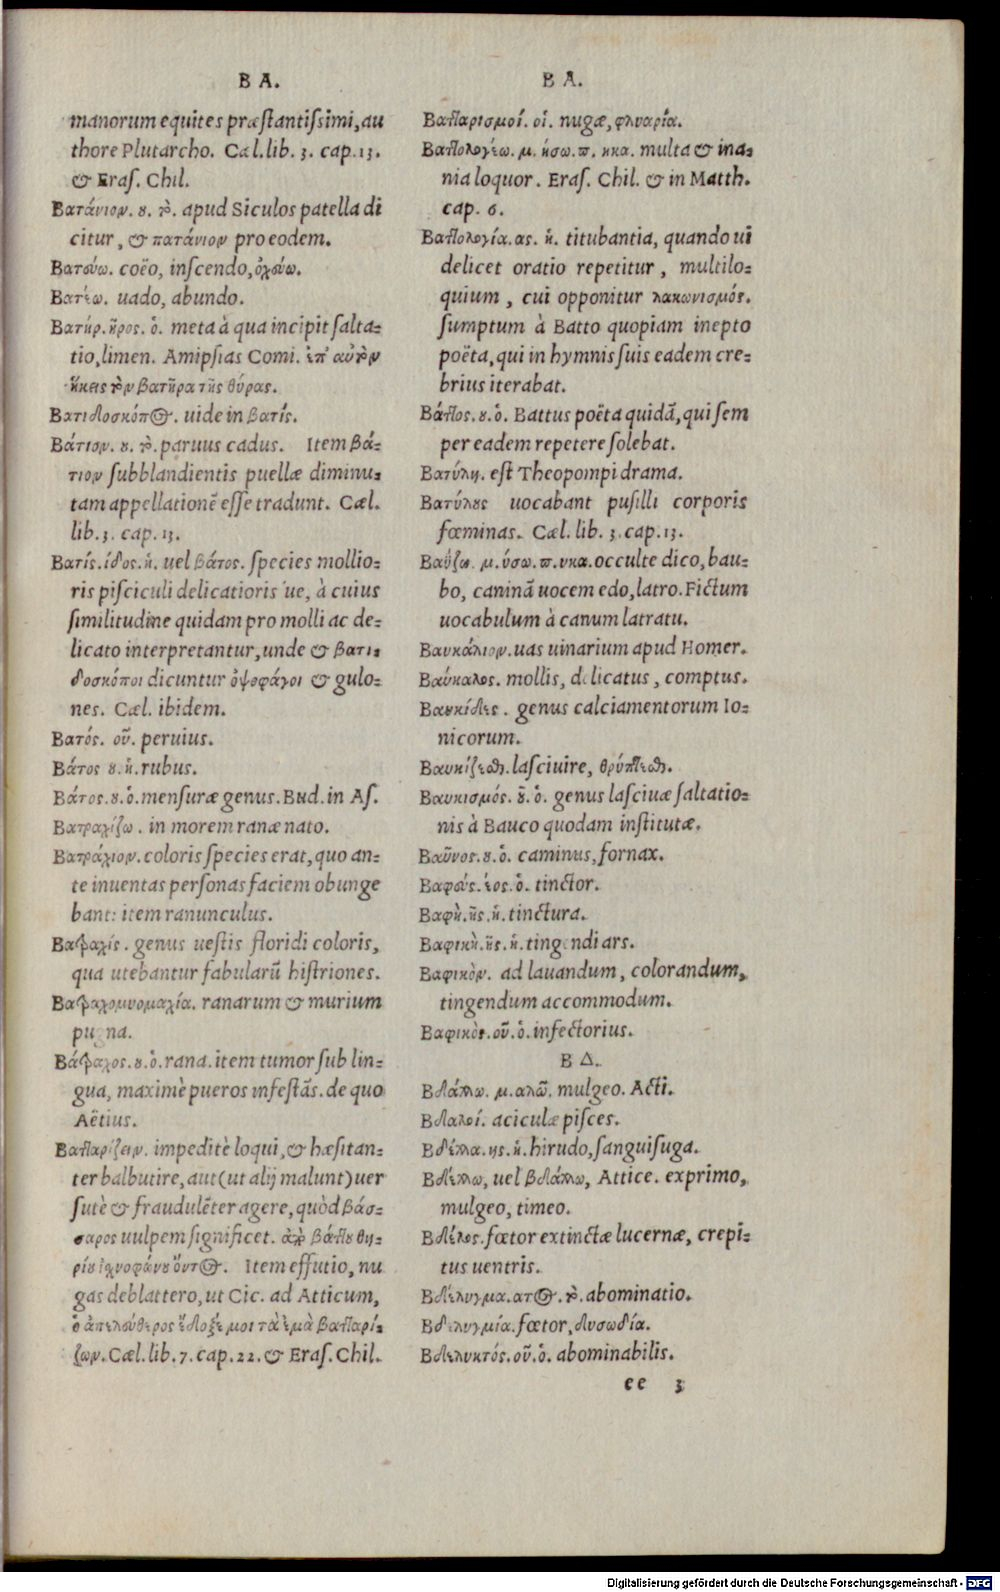 B A.
manorum equites præstantissimi, au
thore Plutarcho. Cæl. lib. 3. cap. 13.
& Eras. Chil.
Βατάνιον. ου. τὸ. apud Siculos patella di
citur, & πατάνιον pro eodem.
Βατεύω. coëo, inscendo, ὀχεύω.
Βατέω. uado, abundo.
Βατήρ. ῆρος. ὁ. meta à qua incipit salta=
tio, limen. Amipsias Comi. ἐπ' αὐτὸν
ἥκεις τὸν βατῆρα τῆς θύρας.
Βατιδοσκόπος. uide in βατίς.
Βάτιον. ου. τὸ. paruus cadus. Item βά=
τιον subblandientis puellæ diminu=
tam appellationẽ esse tradunt. Cæl.
lib. 3. cap. 13.
Βατίς. ίδος. ἡ. uel βάτος. species mollio=
ris pisciculi delicatioris ue, à cuius
similitudine quidam pro molli ac de=
licato interpretantur, unde & βατι=
δοσκόποι dicuntur ὀψοφάγοι & gulo=
nes. Cæl. ibidem.
Βατός. οῦ. peruius.
Βάτος ου. ἡ. rubus.
Βάτος. ου. ὁ. mensuræ genus. Bud. in As.
Βατραχίζω. in morem ranæ nato.
Βατράχιον. coloris species erat, quo an=
te inuentas personas faciem obunge
bant: item ranunculus.
Βατραχίς. genus uestis floridi coloris,
qua utebantur fabularũ histriones.
Βατραχομυομαχία. ranarum & murium
pugna.
Βάτραχος. ου. ὁ. rana. item tumor sub lin=
gua, maximè pueros infestãs. de quo
Aëtius.
Βατταρίζειν. impeditè loqui, & hæsitan=
ter balbutire, aut (ut alij malunt) uer
sutè & fraudulẽter agere, quòd βάσ=
σαρος uulpem significet. ἀπὸ βάττου θη=
ρίου ἰχνοφάνου ὄντος. Item effutio, nu
gas deblattero, ut Cic. ad Atticum,
ὁ ἀπελεύθερος ἔδοξέ μοι τὰ ἐμὰ βατταρί=
ζων. Cæl. lib. 7. cap. 22. & Eras. Chil.
B A.
Βατταρισμοί. οἱ. nugæ, φλυαρία.
Βαττολογέω. μ. ήσω. π. ηκα. multa & ina=
nia loquor. Eras. Chil. & in Matth.
cap. 6.
Βαττολογία. ας. ἡ. titubantia, quando ui
delicet oratio repetitur, multilo=
quium, cui opponitur λακωνισμός.
sumptum à Batto quopiam inepto
poëta, qui in hymnis suis eadem cre=
brius iterabat.
Βάττος. ου. ὁ. Battus poëta quidã, qui sem
per eadem repetere solebat.
Βατύλη. est Theopompi drama.
Βατύλους uocabant pusilli corporis
fœminas. Cæl. lib. 3. cap. 13.
Βαΰζω. μ. ύσω. π. υκα. occulte dico, bau=
bo, caninã uocem edo, latro. Fictum
uocabulum à canum latratu.
Βαυκάλιον. uas uinarium apud Homer.
Βαύκαλος. mollis, delicatus, comptus.
Βαυκίδες. genus calciamentorum Io=
nicorum.
Βαυκίζεσθαι. lasciuire, θρύπτεσθαι.
Βαυκισμός. οῦ. ὁ. genus lasciuæ saltatio=
nis à Bauco quodam institutæ.
Βαῦνος. ου. ὁ. caminus, fornax.
Βαφεύς. έος. ὁ. tinctor.
Βαφὴ. ῆς. ἡ. tinctura.
Βαφικὴ. ῆς. ἡ. tingendi ars.
Βαφικὸν. ad lauandum, colorandum,
tingendum accommodum.
Βαφικὸς. οῦ. ὁ. infectorius.
B Δ.
Βδάλλω. μ. αλῶ. mulgeo. Acti.
Βδαλοί. aciculæ pisces.
Βδέλλα. ης. ἡ. hirudo, sanguisuga.
Βδέλλω, uel βδάλλω, Attice. exprimo,
mulgeo, timeo.
Βδέλος. fœtor extinctæ lucernæ, crepi=
tus uentris.
Βδέλυγμα. ατος. τὸ. abominatio.
Βδελυγμία. fœtor, δυσωδία.
Βδελυκτός. οῦ. ὁ. abominabilis.
ee 3
Digitalisierung gefördert durch die Deutsche Forschungsgemeinschaft - DFG